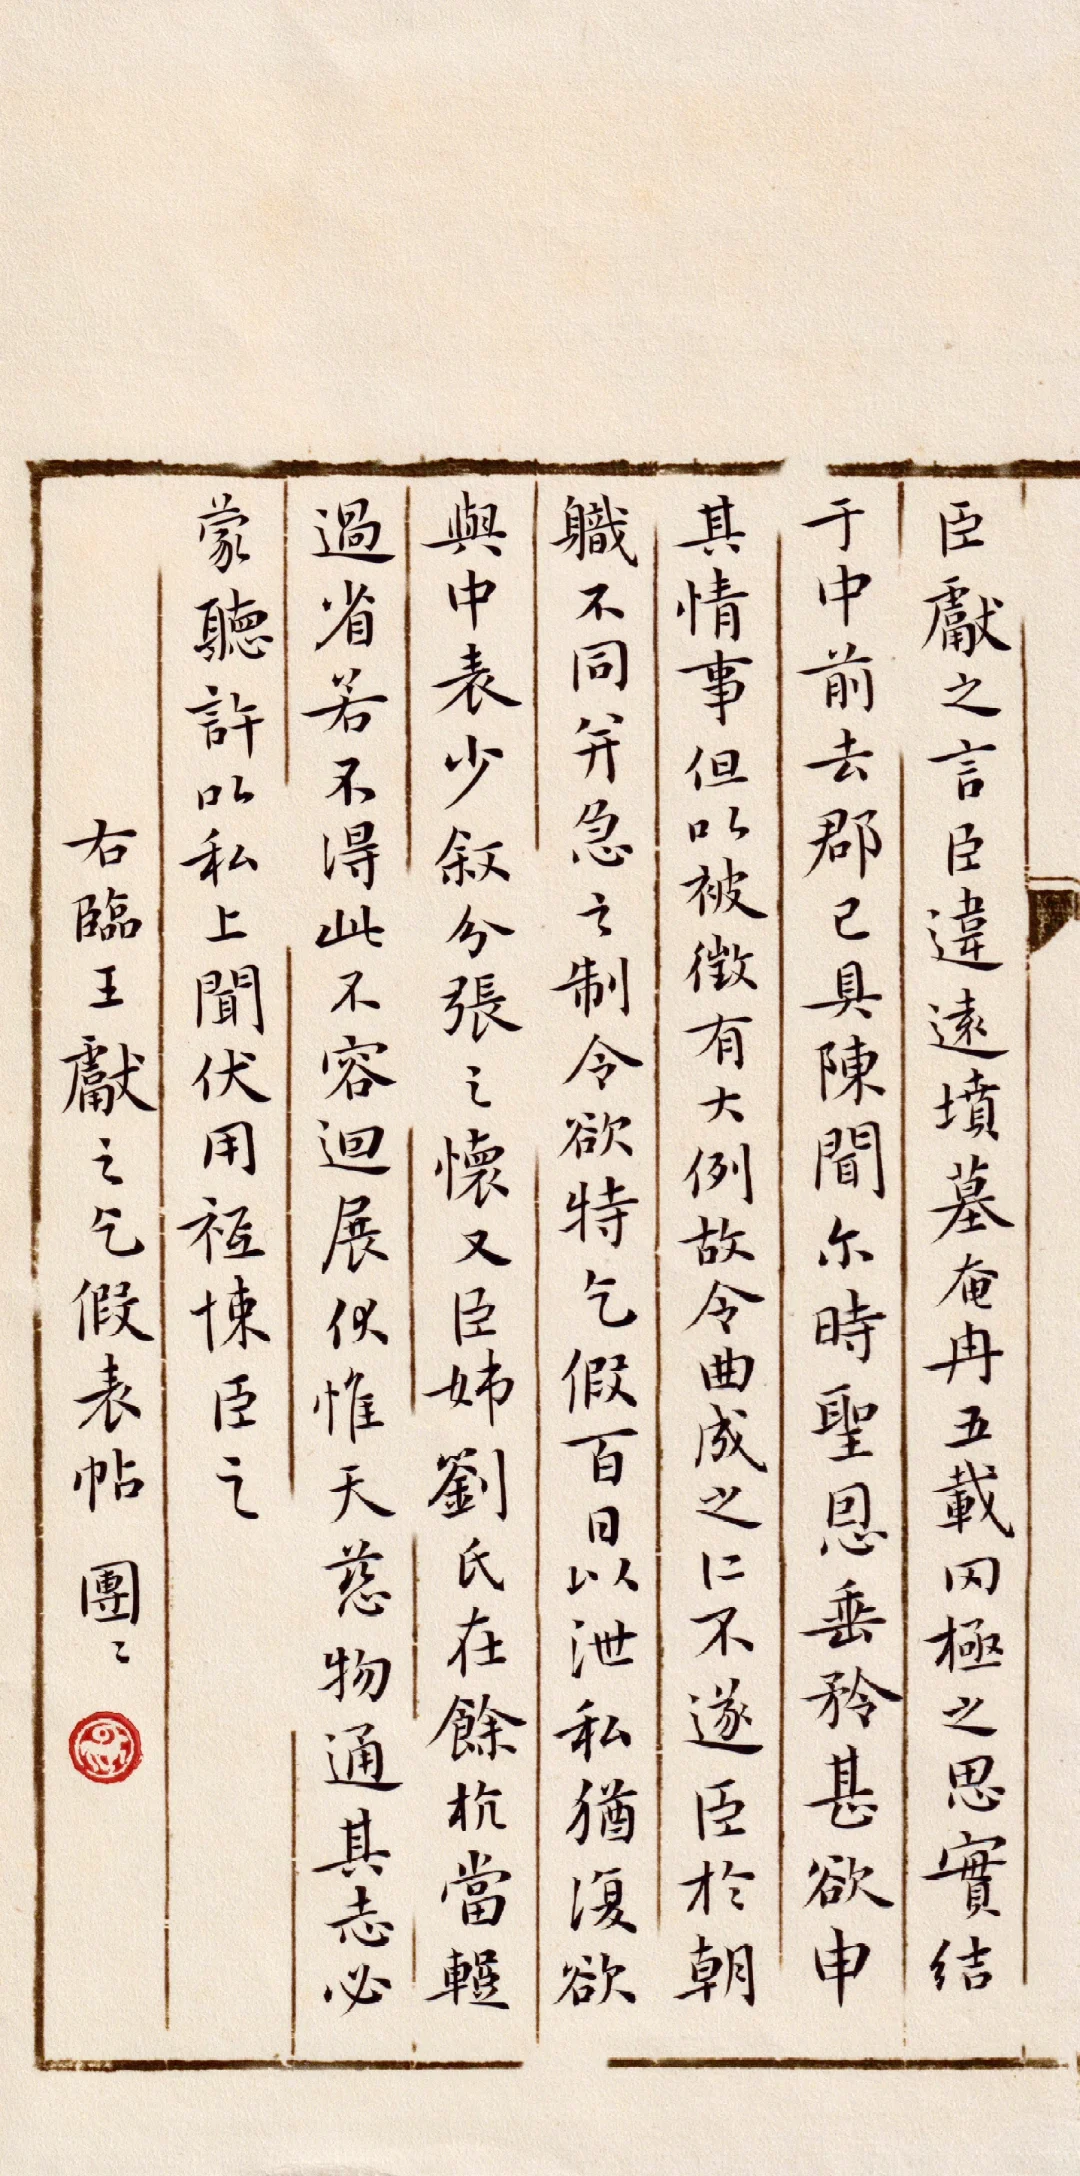 臣獻之言臣違遠墳墓奄冉五載罔極之思實結
于中前去郡已具陳聞尓時聖恩垂矜甚欲申
其情事但以被徴有大例故令曲成之仁不遂臣於朝
職不同并急之制令欲特乞假百日以泄私猶復欲
與中表少叙分張之懷又臣姊劉氏在餘杭當輕
過省若不得此不容迴展伏惟天慈物通其志必
蒙聽許以私上聞伏用祗悚臣之
右臨王獻之乞假表帖 團〻